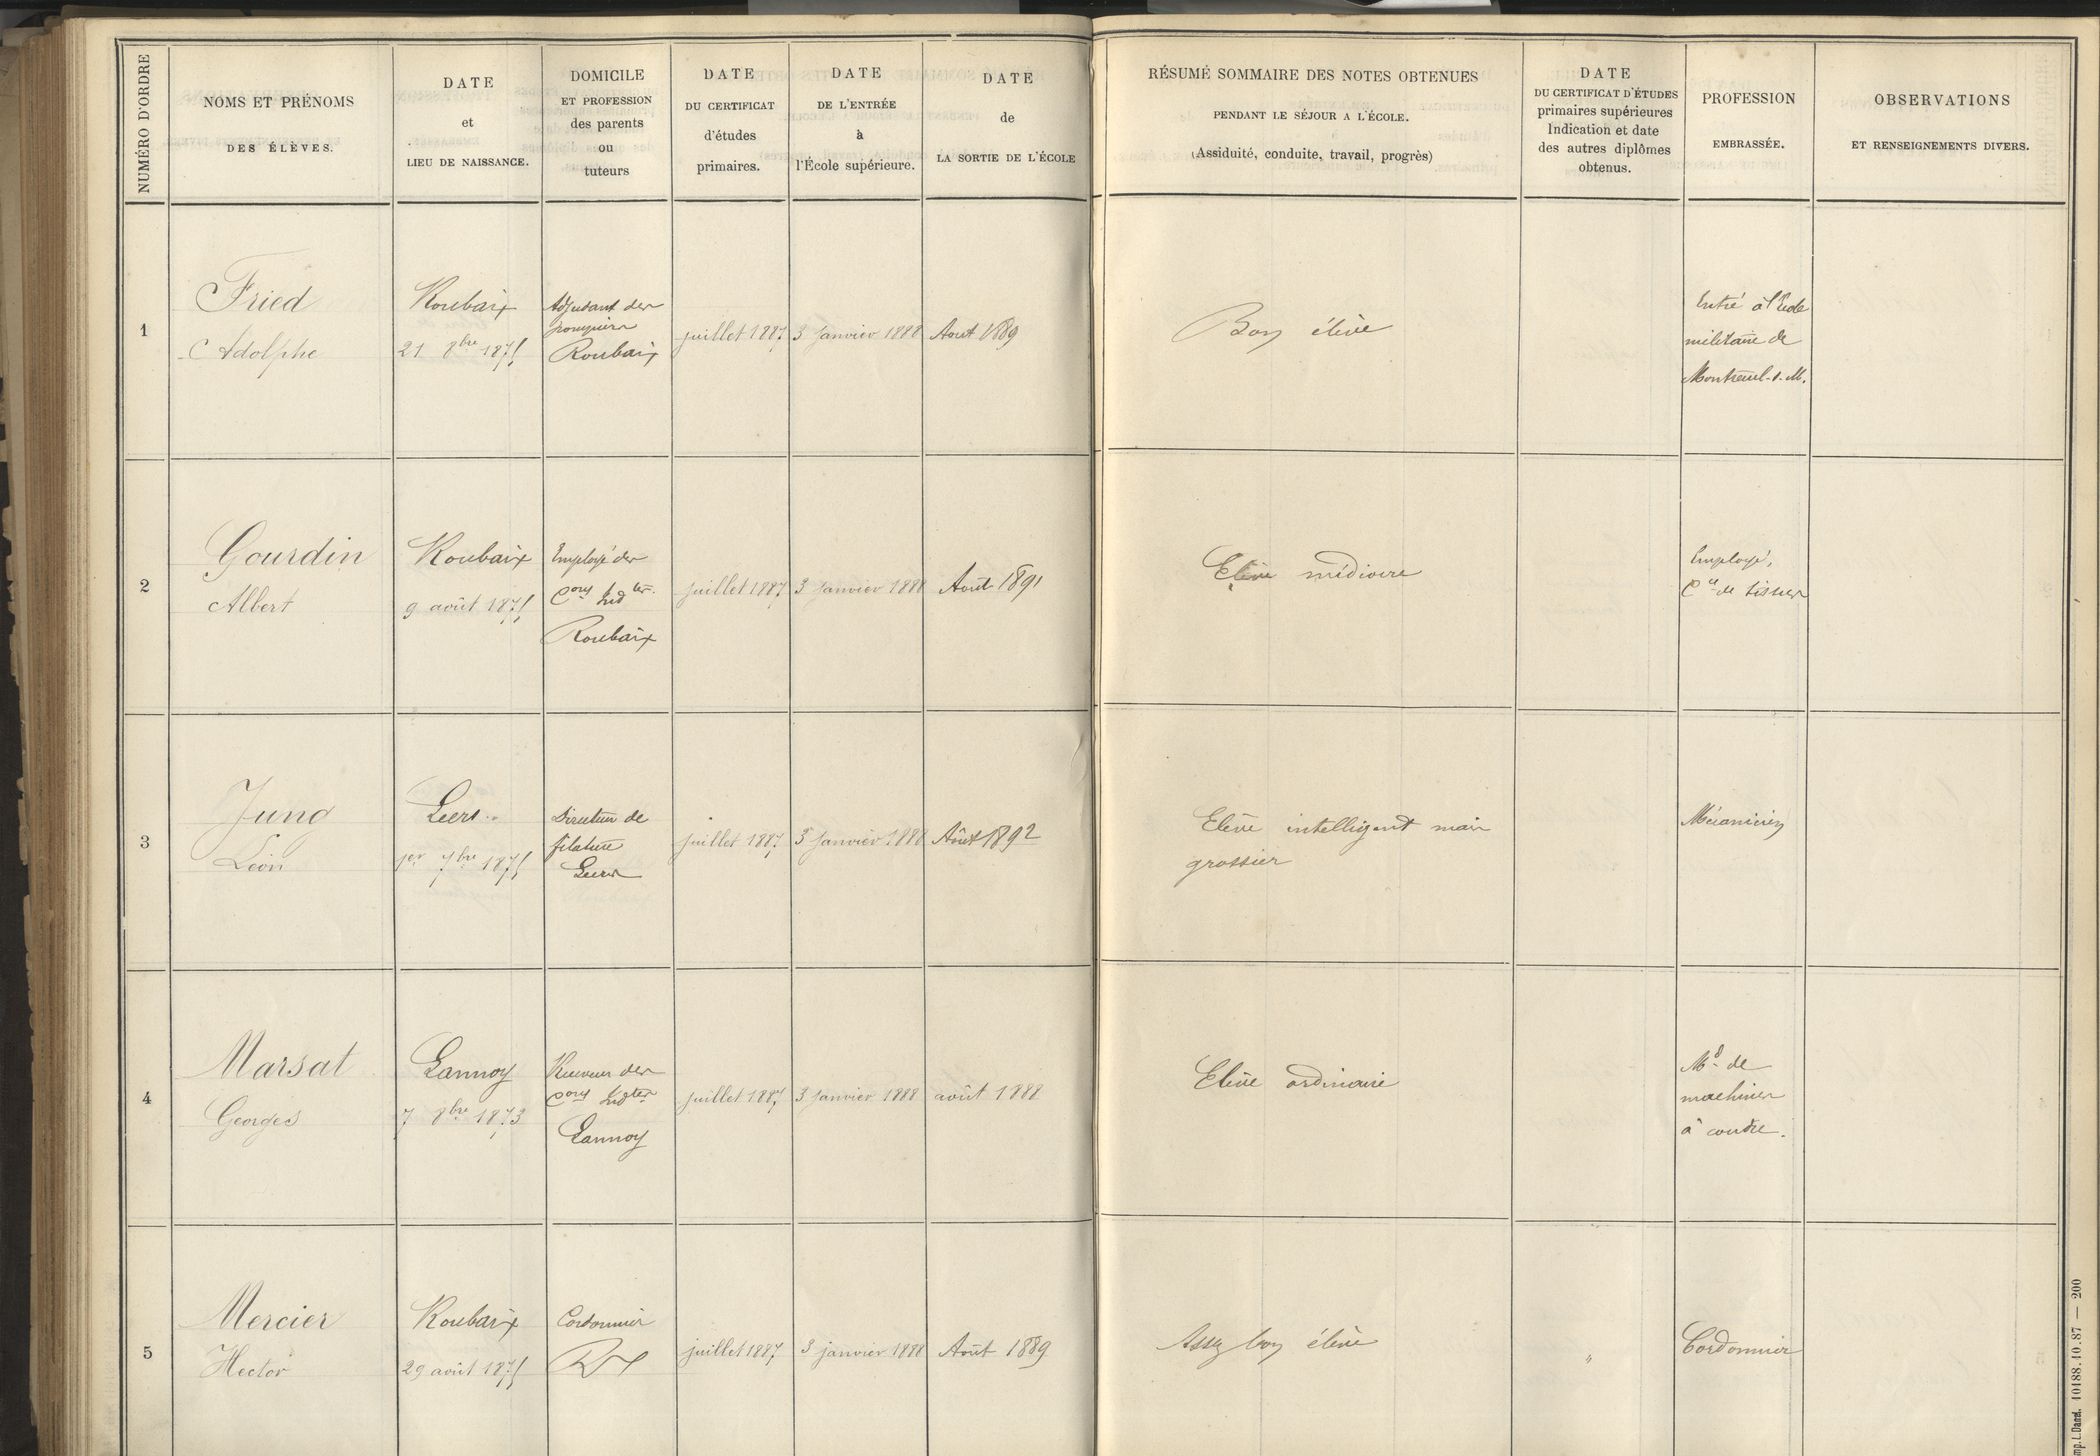 NUMÉRO D'ORDRE
NOMS ET PRÉNOMS
DES ÉLÈVES.
DATE
et
LIEU DE NAISSANCE.
DOMICILE
ET PROFESSION
des parents
ou
tuteurs
DATE
DU CERTIFICAT
d'études
primaires.
DATE
DE L'ENTRÉE
à
l'École supérieure.
DATE
de
LA SORTIE DE L'ÉCOLE
RÉSUMÉ SOMMAIRE DES NOTES OBTENUES
PENDANT LE SÉJOUR A L'ÉCOLE.
(Assiduité, conduite, travail, progrès)
DATE
DU CERTIFICAT D'ÉTUDES
primaires supérieures
Indication et date
des autres diplômes
obtenus.
PROFESSION
EMBRASSÉE.
OBSERVATIONS
ET RENSEIGNEMENTS DIVERS.
1
Fried
Adolphe
Roubaix
21 8bre 1875
Adjudant des
pompiers
Roubaix
juillet 1887
3 janvier 1888
Aout 1889
Bon élève
Entré à l'Ecole
militaire de
Montreuil-s-M.
2
Gourdin
Albert
Roubaix
9 août 1875
Employé des
Cons Indtes.
Roubaix
juillet 1887
3 janvier 1888
Août 1891
Elève médiocre
Employé,
Cie de tissus
3
Jung
Léon
Leers
1er 7bre 1875
Directeur de
filature
Leers
juillet 1887
3 janvier 1888
Août 1892
Elève intelligent mais
grossier
Mécanicien
4
Marsat
Georges
Lannoy
7 8bre 1873
Receveur des
Cons Indtes
Lannoy
juillet 1887
3 janvier 1888
août 1888
Elève ordinaire
Md de
machines
à coudre.
5
Mercier
Hector
Roubaix
29 août 1875
Cordonnier
Rx
juillet 1887
3 janvier 1888
Août 1889
Assez bon élève
"
Cordonnier
mp. L. Danel. 10188.10.87 — 200